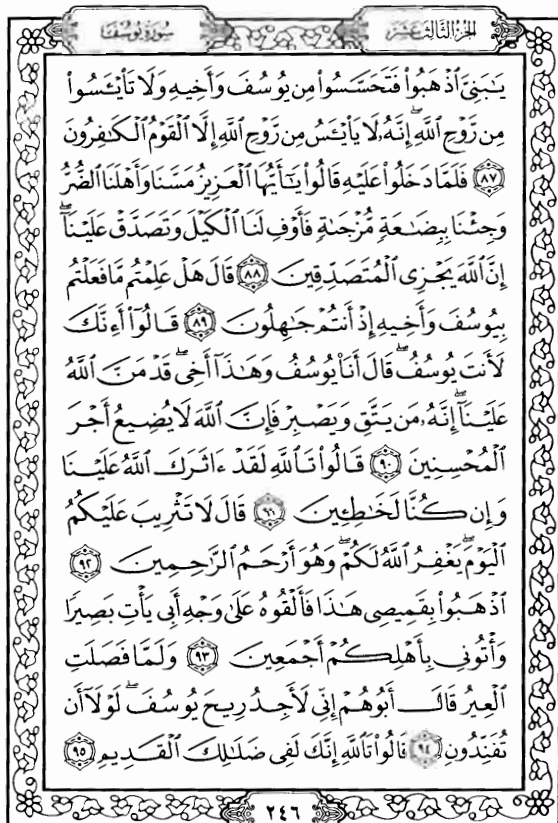 الجزء الثالث عشر
سورة يوسف
يَٰبَنِيَّ ٱذْهَبُوا۟ فَتَحَسَّسُوا۟ مِن يُوسُفَ وَأَخِيهِ وَلَا تَا۟يْـَٔسُوا۟
مِن رَّوْحِ ٱللَّهِ ۖ إِنَّهُۥ لَا يَا۟يْـَٔسُ مِن رَّوْحِ ٱللَّهِ إِلَّا ٱلْقَوْمُ ٱلْكَٰفِرُونَ
﴿٨٧﴾ فَلَمَّا دَخَلُوا۟ عَلَيْهِ قَالُوا۟ يَٰٓأَيُّهَا ٱلْعَزِيزُ مَسَّنَا وَأَهْلَنَا ٱلضُّرُّ
وَجِئْنَا بِبِضَٰعَةٍ مُّزْجَىٰةٍ فَأَوْفِ لَنَا ٱلْكَيْلَ وَتَصَدَّقْ عَلَيْنَآ ۖ
إِنَّ ٱللَّهَ يَجْزِى ٱلْمُتَصَدِّقِينَ ﴿٨٨﴾ قَالَ هَلْ عَلِمْتُم مَّا فَعَلْتُم
بِيُوسُفَ وَأَخِيهِ إِذْ أَنتُمْ جَٰهِلُونَ ﴿٨٩﴾ قَالُوٓا۟ أَءِنَّكَ
لَأَنتَ يُوسُفُ ۖ قَالَ أَنَا۠ يُوسُفُ وَهَٰذَآ أَخِى ۖ قَدْ مَنَّ ٱللَّهُ
عَلَيْنَآ ۖ إِنَّهُۥ مَن يَتَّقِ وَيَصْبِرْ فَإِنَّ ٱللَّهَ لَا يُضِيعُ أَجْرَ
ٱلْمُحْسِنِينَ ﴿٩٠﴾ قَالُوا۟ تَٱللَّهِ لَقَدْ ءَاثَرَكَ ٱللَّهُ عَلَيْنَا
وَإِن كُنَّا لَخَٰطِـِٔينَ ﴿٩١﴾ قَالَ لَا تَثْرِيبَ عَلَيْكُمُ
ٱلْيَوْمَ ۖ يَغْفِرُ ٱللَّهُ لَكُمْ ۖ وَهُوَ أَرْحَمُ ٱلرَّٰحِمِينَ ﴿٩٢﴾
ٱذْهَبُوا۟ بِقَمِيصِى هَٰذَا فَأَلْقُوهُ عَلَىٰ وَجْهِ أَبِى يَأْتِ بَصِيرًا
وَأْتُونِى بِأَهْلِكُمْ أَجْمَعِينَ ﴿٩٣﴾ وَلَمَّا فَصَلَتِ
ٱلْعِيرُ قَالَ أَبُوهُمْ إِنِّى لَأَجِدُ رِيحَ يُوسُفَ ۖ لَوْلَآ أَن
تُفَنِّدُونِ ﴿٩٤﴾ قَالُوا۟ تَٱللَّهِ إِنَّكَ لَفِى ضَلَٰلِكَ ٱلْقَدِيمِ ﴿٩٥﴾
٢٤٦